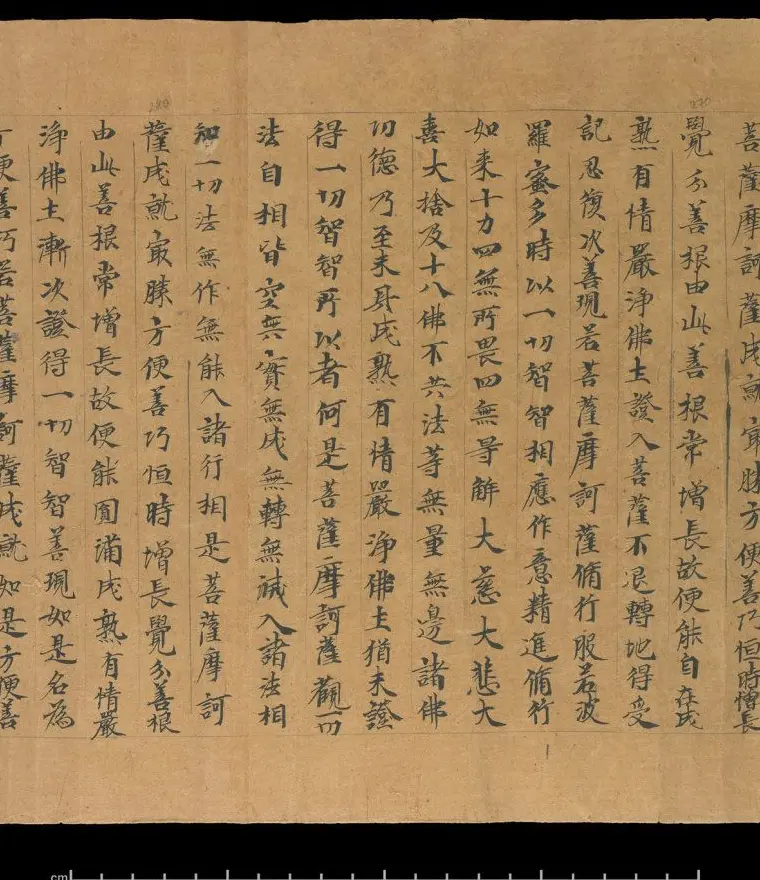 菩薩摩訶薩成就最勝方便善巧恒時增長
覺分善根由此善根常增長故便能自在成
熟有情嚴淨佛土證入菩薩不退轉地得受
記忍復次善現若菩薩摩訶薩脩行般若波
羅蜜多時以一切智智相應作意精進脩行
如来十力四無所畏四無导解大慈大悲大
喜大捨及十八佛不共法等無量無邊諸佛
功德乃至未具成熟有情嚴淨佛土猶未證
得一切智智所以者何是菩薩摩訶薩觀一切
法自相皆空無實無成無轉無減入諸法相
知一切法無作無能入諸行相是菩薩摩訶
薩成就最勝方便善巧恒時增長覺分善根
由此善根常增長故便能圓滿成熟有情嚴
淨佛土漸次證得一切智智善現如是名為
方便善巧若菩薩摩訶薩成就如是方便善
270
280
cm